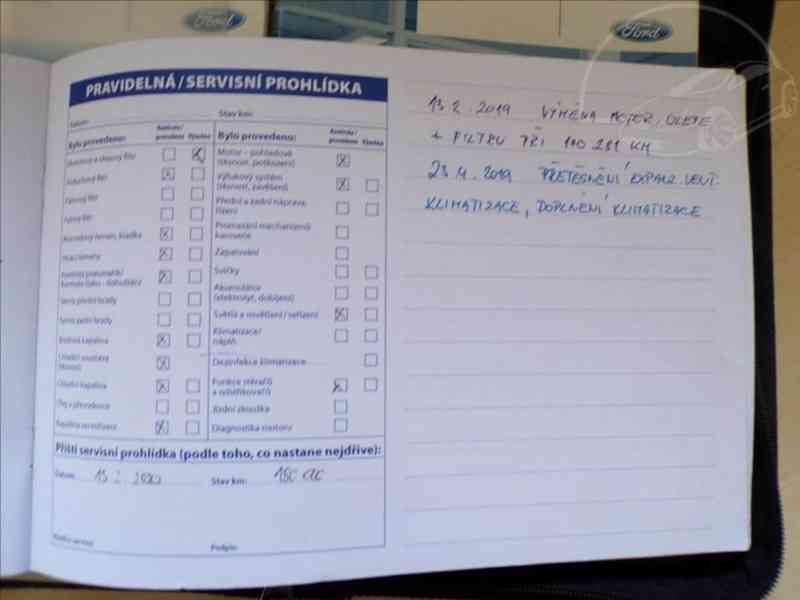 Ford
Ford
PRAVIDELNÁ / SERVISNÍ PROHLÍDKA
Datum:
Stav km:
Bylo provedeno:
Kontrola / provedeno
Výměna
Olej motoru a olejový filtr
Vzduchový filtr
Palivový filtr
Pylový filtr
Rozvodový řemen, kladka
Hnací řemeny
Servis přední brzdy
Servis zadní brzdy
Brzdová kapalina
Chladicí kapalina
Olej v převodovce
Bylo provedeno:
Kontrola / provedeno
Výměna
Motor – pohledově
(těsnost, poškození)
Výfukový systém
(těsnost, zavěšení)
Přední a zadní náprava,
řízení
Promazání mechanismů
karoserie
Zapalování
Svíčky
Akumulátor
(elektrolyt, dobíjení)
Světla a osvětlení / seřízení
Klimatizace /
náplň
Dezinfekce klimatizace
Funkce stěračů
a ostřikovačů
Jízdní zkouška
Diagnostika motoru
Příští servisní prohlídka (podle toho, co nastane nejdříve):
Datum: 13 2. 2020
Stav km:
Podpis:
13 2. 2019 VÝMĚNA MOTOR. OLEJE
+ FILTRU PŘI
KM
23 4. 2019 PŘETĚSNĚNÍ EXPANZ. VENT.
KLIMATIZACE, DOPLNĚNÍ KLIMATIZACE